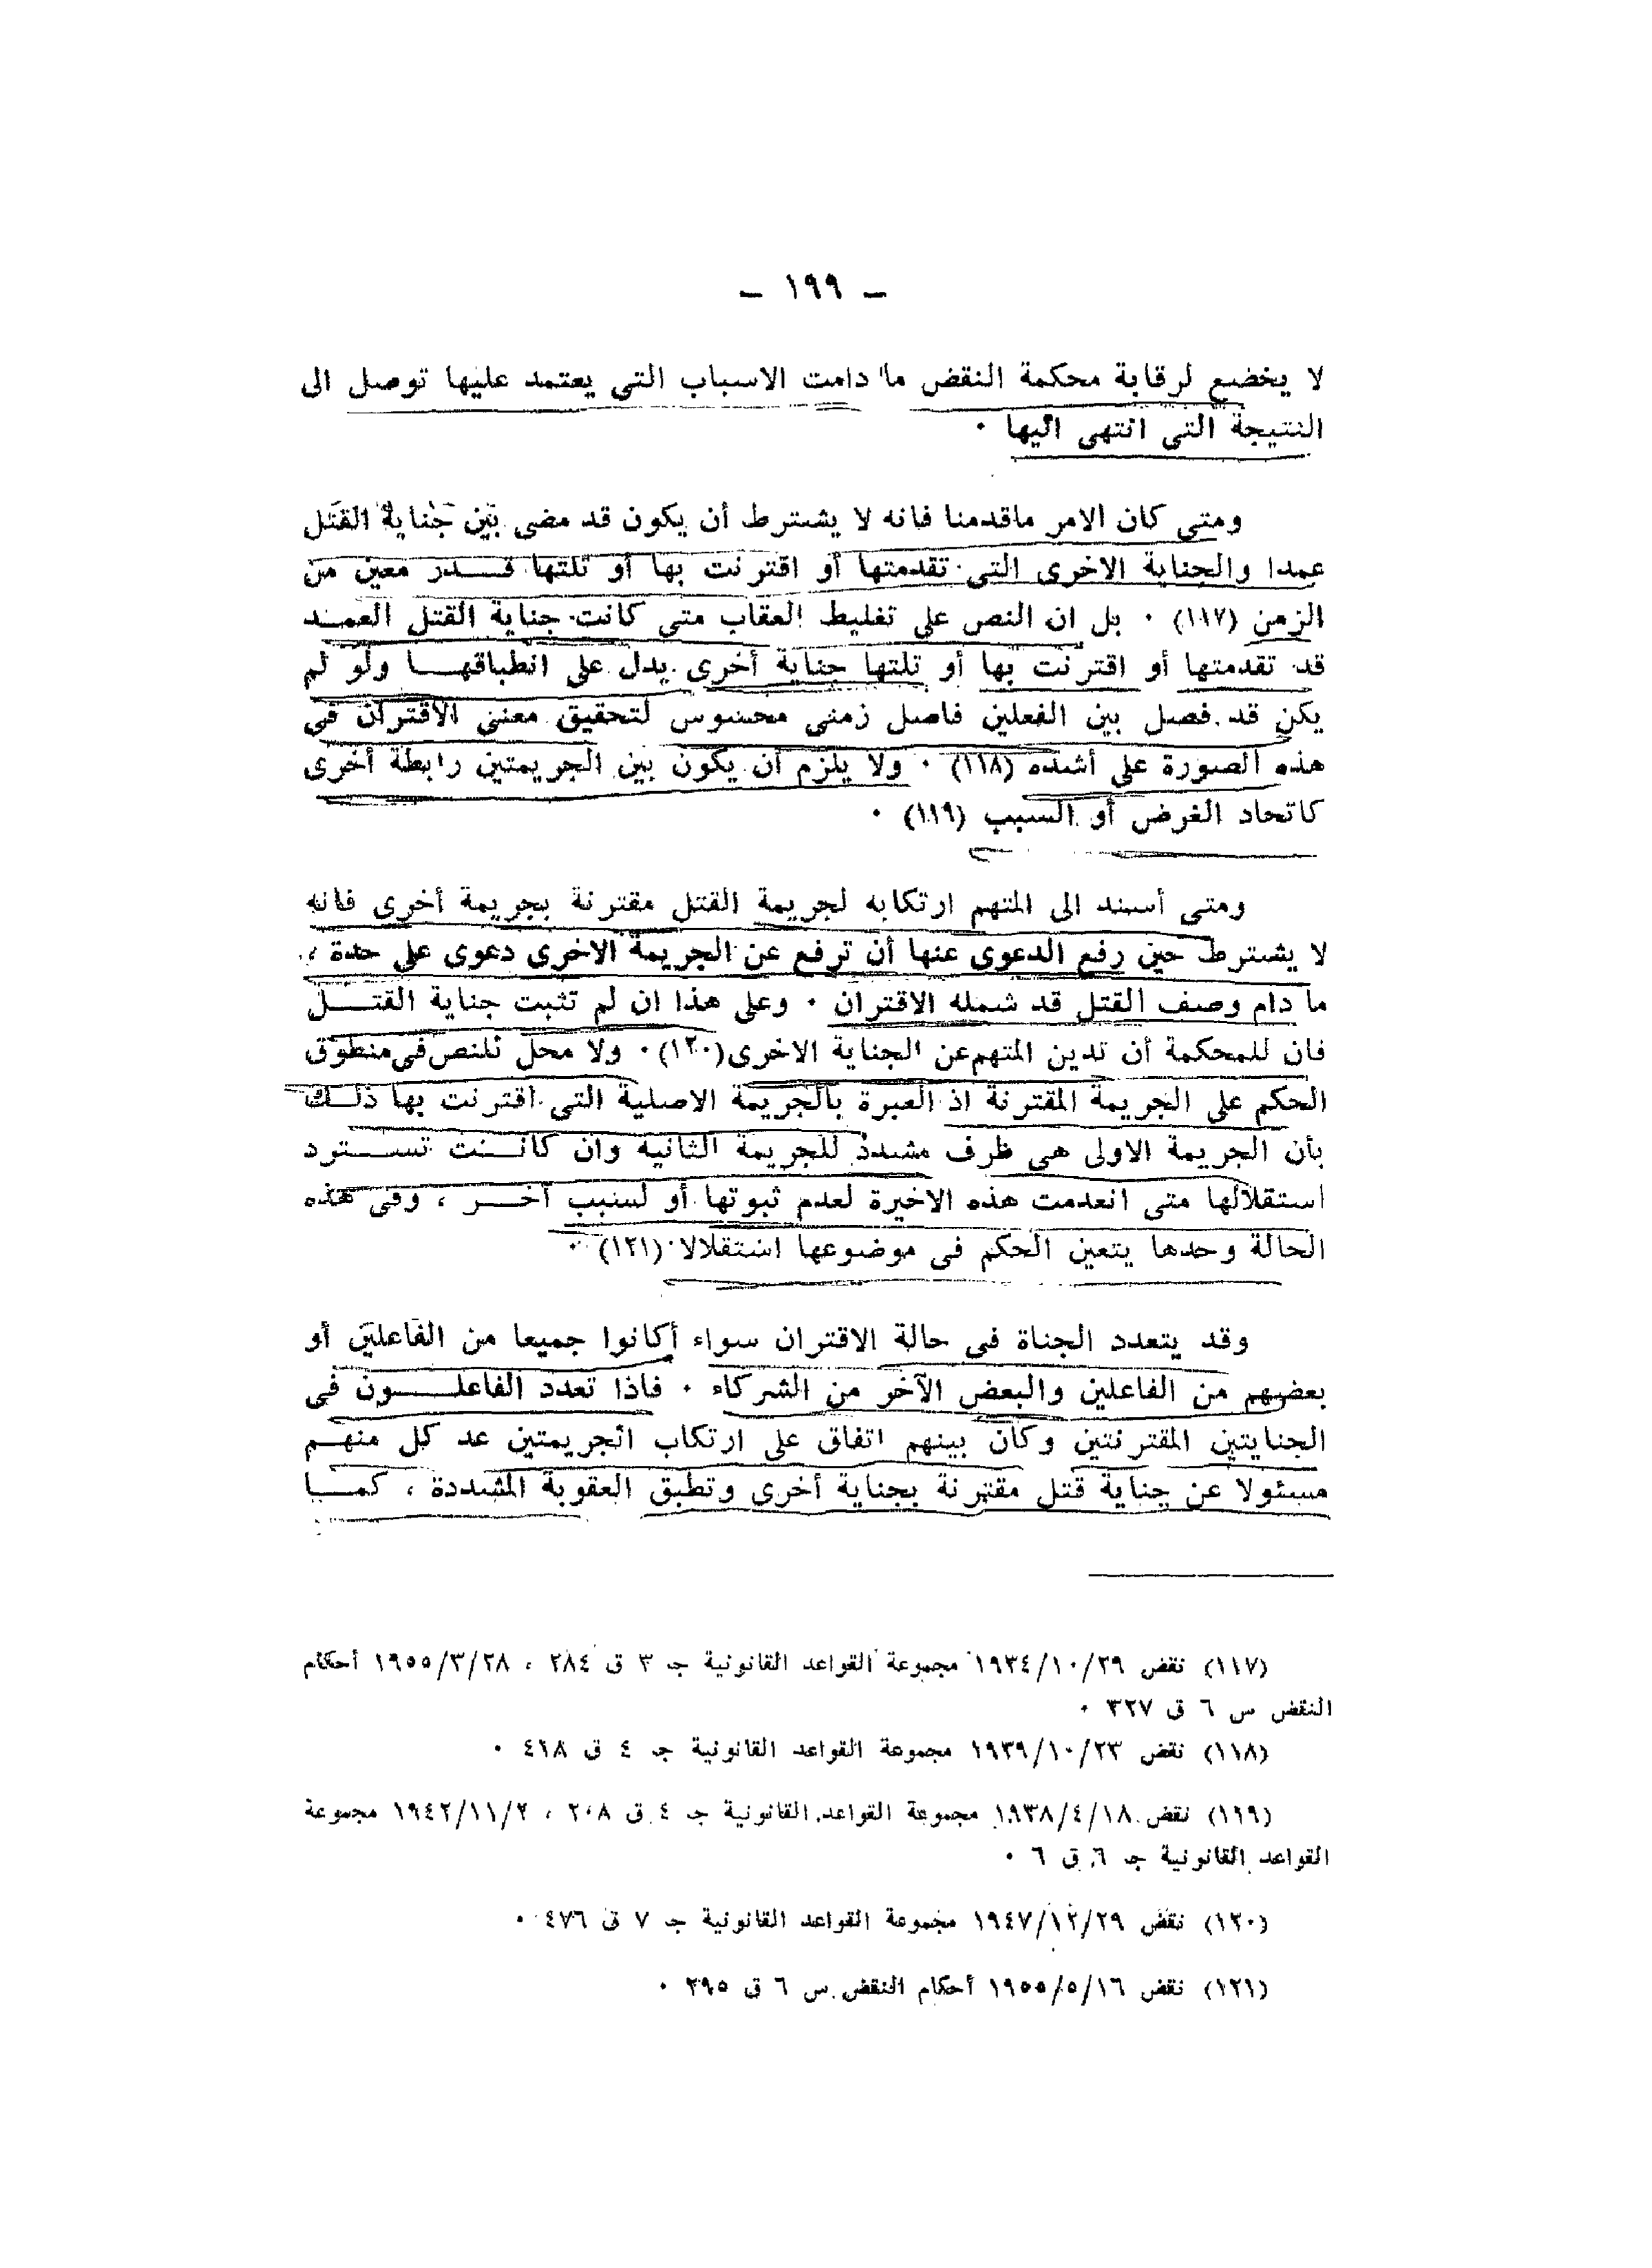 – ١٩٩ –
لا يخضع لرقابة محكمة النقض ما دامت الاسباب التى يعتمد عليها توصل الى
النتيجة التى انتهى اليها ٠
ومتى كان الامر ماقدمنا فانه لا يشترط أن يكون قد مضى بين جناية القتل
عمدا والجناية الاخرى التى تقدمتها أو اقترنت بها أو تلتها قـــدر معين من
الزمن (١١٧) ٠ بل ان النص على تغليظ العقاب متى كانت جناية القتل العمــد
قد تقدمتها أو اقترنت بها أو تلتها جناية أخرى يدل على انطباقهــا ولو لم
يكن قد فصل بين الفعلين فاصل زمنى محسوس لتحقيق معنى الاقتران فى
هذه الصورة على أشده (١١٨) ٠ ولا يلزم أن يكون بين الجريمتين رابطة أخرى
كاتحاد الغرض أو السبب (١١٩) ٠
ومتى أسند الى المتهم ارتكابه لجريمة القتل مقترنة بجريمة أخرى فانه
لا يشترط حين رفع الدعوى عنها أن ترفع عن الجريمة الاخرى دعوى على حدة ،
ما دام وصف القتل قد شمله الاقتران ٠ وعلى هذا ان لم تثبت جناية القتــل
فان للمحكمة أن تدين المتهم عن الجناية الاخرى (١٢٠) ٠ ولا محل للنص فى منطوق
الحكم على الجريمة المقترنة اذ العبرة بالجريمة الاصلية التى اقترنت بها ذلــك
بأن الجريمة الاولى هى ظرف مشدد للجريمة الثانيه وان كانــت تســترد
استقلالها متى انعدمت هذه الاخيرة لعدم ثبوتها أو لسبب آخــر ، وفى هذه
الحالة وحدها يتعين الحكم فى موضوعها استقلالا (١٢١) ٠
وقد يتعدد الجناة فى حالة الاقتران سواء أكانوا جميعا من الفاعلين أو
بعضهم من الفاعلين والبعض الآخر من الشركاء ٠ فاذا تعدد الفاعلــون فى
الجنايتين المقترنتين وكان بينهم اتفاق على ارتكاب الجريمتين عد كل منهــم
مسئولا عن جناية قتل مقترنة بجناية أخرى وتطبق العقوبة المشددة ، كمــا
(١١٧) نقض ١٩٣٤/١٠/٢٩ مجموعة القواعد القانونية جـ ٣ ق ٢٨٤ ، ١٩٥٥/٣/٢٨ أحكام
النقض س ٦ ق ٣٢٧ ٠
(١١٨) نقض ١٩٣٩/١٠/٢٣ مجموعة القواعد القانونية جـ ٤ ق ٤١٨ ٠
(١١٩) نقض ١٩٣٨/٤/١٨ مجموعة القواعد القانونية جـ ٤ ق ٢٠٨ ، ١٩٤٢/١١/٢ مجموعة
القواعد القانونية جـ ٦ ق ٦ ٠
(١٢٠) نقض ١٩٤٧/١٢/٢٩ مجموعة القواعد القانونية جـ ٧ ق ٤٧٦ ٠
(١٢١) نقض ١٩٥٥/٥/١٦ أحكام النقض س ٦ ق ٢٩٥ ٠